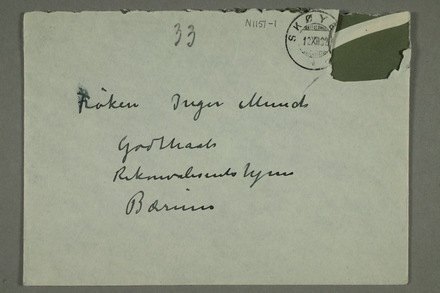 33
N1157-1
SKØYE
12XII32
Frøken Inger Munch
Godthaab
Rekonvalesentshjem
Bærum